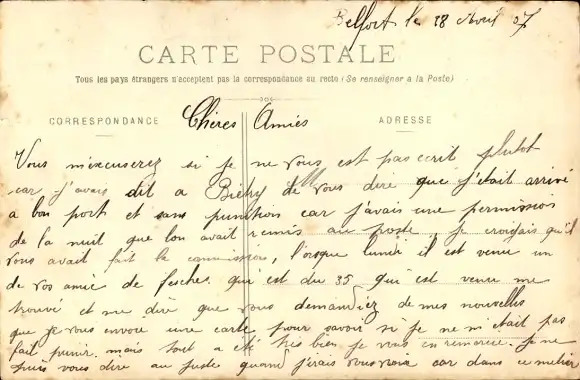 Belfort le 28 Avril 07
CARTE POSTALE
Tous les pays étrangers n'acceptent pas la correspondance au recto (Se renseigner à la Poste)
CORRESPONDANCE
ADRESSE
Chères Amies
Vous m'excuserez si je ne vous est pas ecrit plutot
car j'avais dit a de vous dire que j'etait arrivé
a bon port et sans punition car j'avais une permission
de la nuit que lon avait remis au poste, je croyais qu'il
vous avait fait la commission, lorsque lundi il est venu un
de vos amie de qui est du 35 qui est venu me
trouvé et me dire que vous demandiez de mes nouvelles
que je vous envoie une carte pour savoir si je ne m'etait pas
fait punir. mais tout a été très bien je vous en remercie. je ne
puis vous dire au juste quand j'irais vous voir car dans ce métier